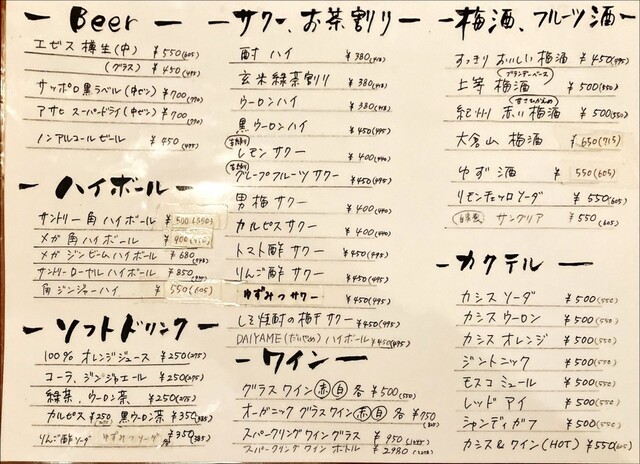 Beer
エビス 樽生(中) ¥550(605)
(グラス) ¥450(495)
サッポロ黒ラベル(中ビン) ¥700(770)
アサヒ スーパードライ(中ビン) ¥700(770)
ノンアルコールビール ¥450(495)
ハイボール
サントリー 角 ハイボール ¥500(550)
メガ 角 ハイボール ¥900(990)
メガ ジンビームハイボール ¥680(748)
サントリーローヤル ハイボール ¥850
角 ジンジャーハイ ¥550(605)
ソフトドリンク
100% オレンジジュース ¥250(275)
コーラ、ジンジャエール ¥250(275)
緑茶、ウーロン茶 ¥250(275)
カルピス ¥250 黒ウーロン茶 ¥350(385)
りんご酢ソーダ ゆずみつソーダ 各 ¥350(385)
サワー、お茶割り
酎 ハイ ¥380(418)
玄米緑茶割り ¥380(418)
ウーロンハイ ¥380(418)
黒ウーロンハイ ¥450(495)
レモン サワー ¥400(440)
グレープフルーツ サワー ¥450(495)
男梅 サワー ¥400(440)
カルピスサワー ¥400(440)
トマト酢 サワー ¥450(495)
りんご酢 サワー ¥450(495)
ゆずみつサワー ¥450(495)
しそ焼酎の梅干サワー ¥450(495)
DAIYAME(だいやめ)ハイボール ¥450(495)
ワイン
グラスワイン 赤 白 各 ¥500(550)
オーガニック グラスワイン 赤 白 各 ¥750
スパークリングワイングラス ¥950
スパークリングワイン ボトル ¥2980
梅酒、フルーツ酒
すっきり おいしい梅酒 ¥450(495)
ブランデーベース
上等 梅酒 ¥500(550)
甘さひかえめ
紀州 赤い 梅酒 ¥500(550)
大倉山 梅酒 ¥650(715)
ゆず 酒 ¥550(605)
リモンチェッロソーダ ¥550(605)
自家製 サングリア ¥550(605)
カクテル
カシス ソーダ ¥500(550)
カシス ウーロン ¥500(550)
カシス オレンジ ¥500(550)
ジントニック ¥500(550)
モスコ ミュール ¥500(550)
レッド アイ ¥500(550)
シャンディガフ ¥500(550)
カシス&ワイン(HOT) ¥550(605)